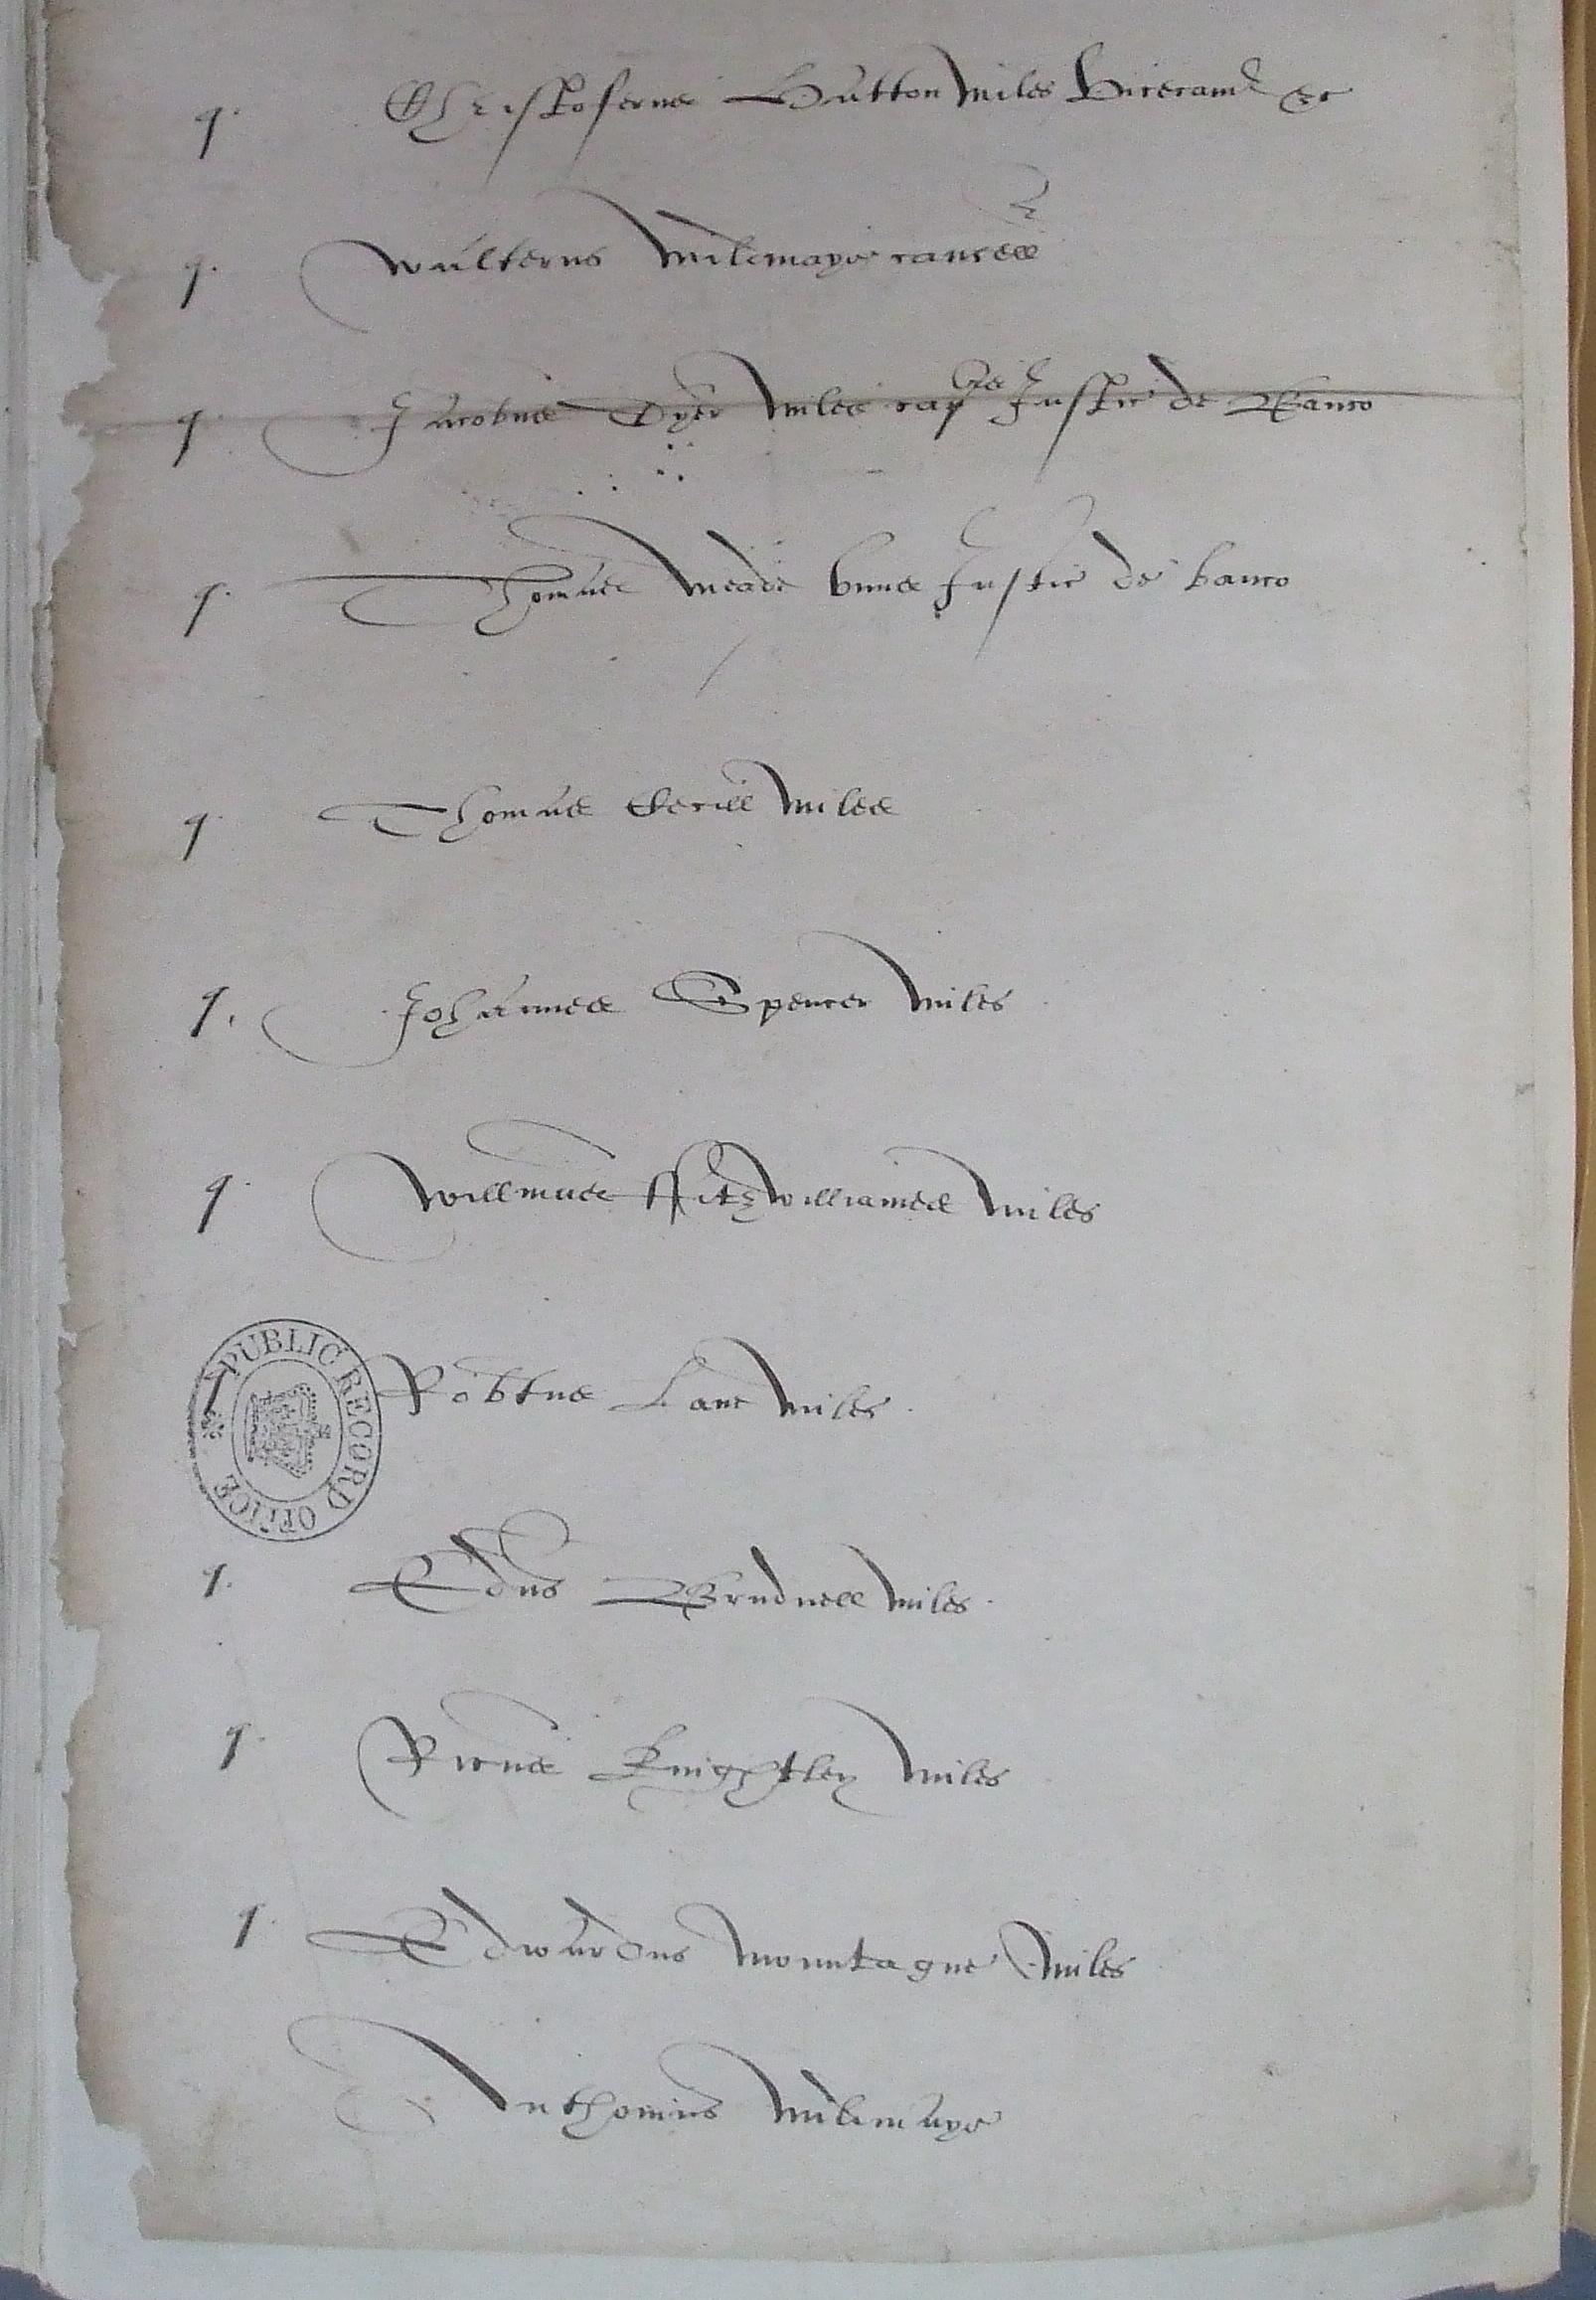 q. Christoferus Hatton miles vicecam̄ &c
q. Walterus Mildmaye cancell
q. Jacobus Dyer miles cap Justic de Banco
q. Thomas Meade vnus Justic de banco
q. Thomas Cecill miles
q. Johannes Spencer miles
q. Willmus Fitzwilliames miles
q Robtus Lane miles.
q. Edus Brudnell miles.
q. Ricus Knightley miles
q. Edwardus Mountague miles
Anthonius Mildmaye
PUBLIC RECORD OFFICE